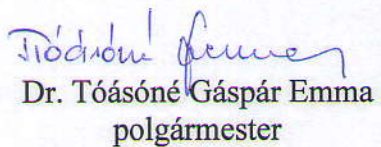 Tóásóné Gáspár Emma
Dr. Tóásóné Gáspár Emma
polgármester